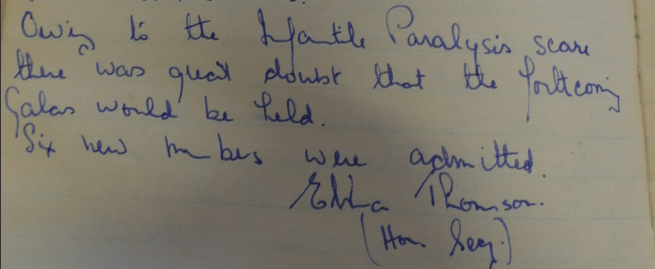 Owing to the Infantile Paralysis scare
there was great doubt that the forthcoming
Galas would be held.
Six new members were admitted.
Thomson.
(Hon. Secy.)